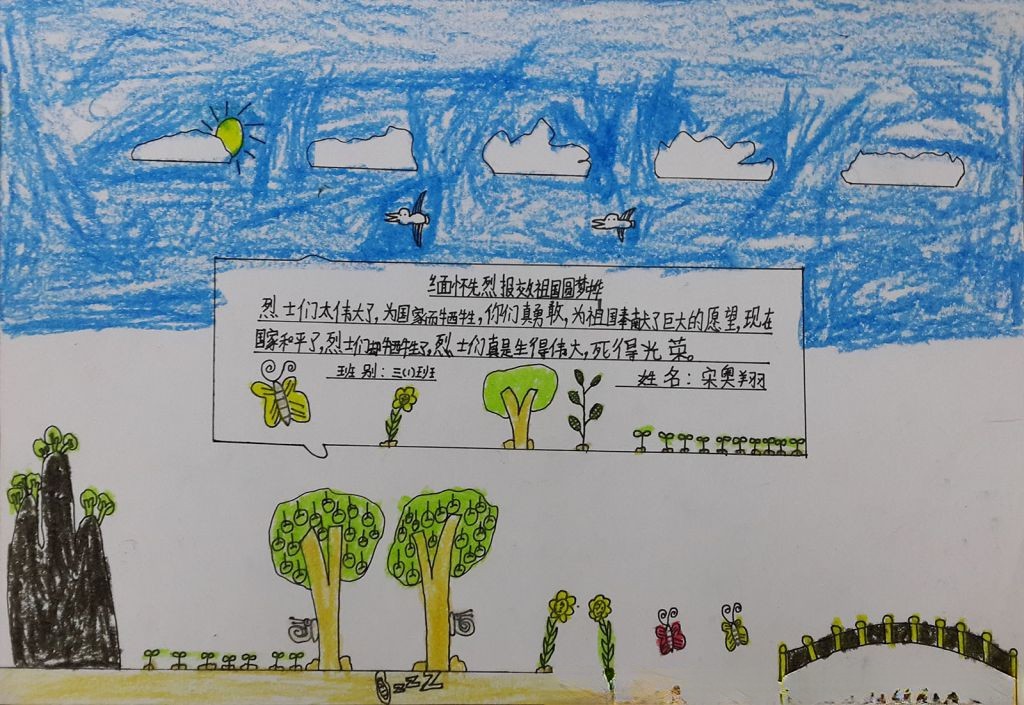 缅怀先烈报效祖国圆梦桦
烈士们太伟大了,为国家而牺牲,你们真勇敢,为祖国奉献了巨大的愿望,现在
国家和平了,烈士们却牺牲了,烈士们真是生得伟大,死得光荣。
班别:三(1)班
姓名:宋奥翔
zzZ